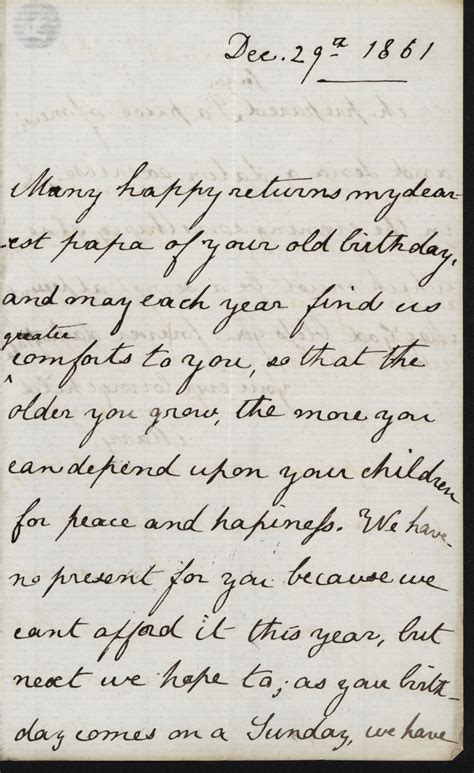 Dec. 29th 1861
Many happy returns my dear-
est papa of your old birthday,
and may each year find us
greater
comforts to you, so that the
older you grow, the more you
can depend upon your children
for peace and hapiness. We have
no present for you because we
cant afford it this year, but
next we hope to; as you birth-
day comes on a Sunday, we have